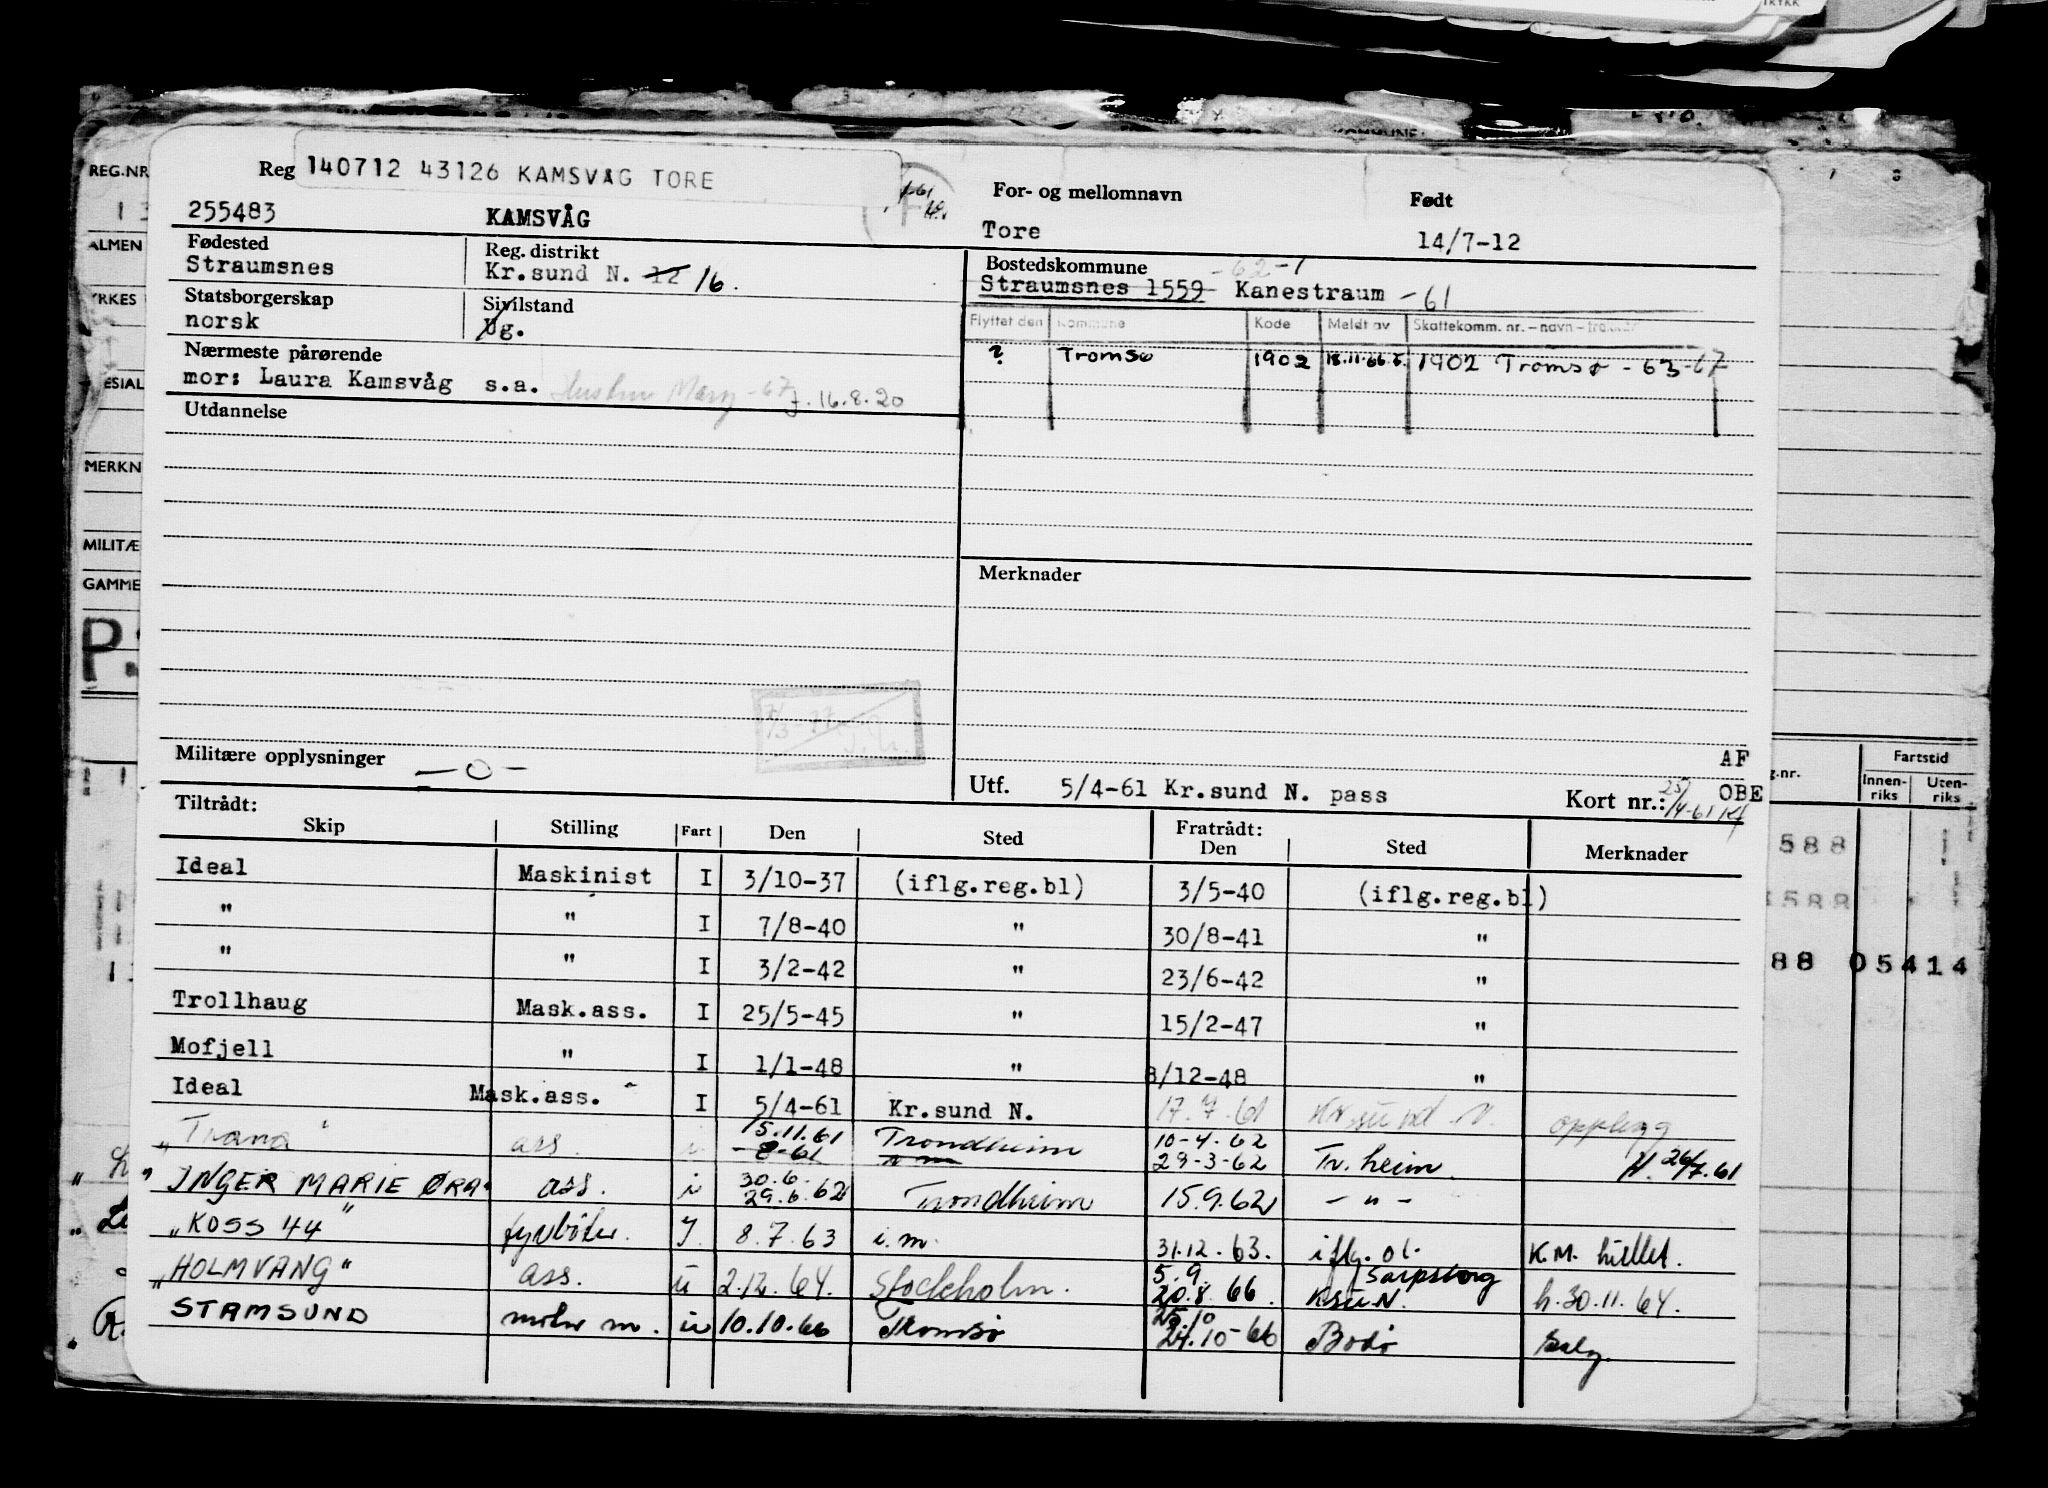 TRYKK
KOMMUNE:
REG.NR.
ALMEN
YRKES
MERKN
MILITÆ
GAMME
Reg 140712 43126 KAMSVÅG TORE
For- og mellomnavn Født
255483 KAMSVÅG Tore 14/7-12
Fødested Reg. distrikt Bostedskommune -62-1
Straumsnes Kr.sund N. 12 16. Straumsnes 1559 Kanestraum -61
Statsborgerskap Sivilstand
norsk Ug.
Flyttet den Kommune Kode Meldt av Skattekomm. nr. - navn - trekkår
? Tromsø 1902 18.11.66 1902 Tromsø - 63-67
Nærmeste pårørende
mor: Laura Kamsvåg s.a. Hustru Mary -67 f. 16.8.20
Utdannelse
Merknader
Militære opplysninger -0-
AF
Utf. 5/4-61 Kr.sund N. pass Kort nr.: 25/4-61 OBE
Tiltrådt: Fratrådt:
Skip Stilling Fart Den Sted Den Sted Merknader
Ideal Maskinist I 3/10-37 (iflg.reg.bl) 3/5-40 (iflg.reg.bl)
" " I 7/8-40 " 30/8-41 "
" " I 3/2-42 " 23/6-42 "
Trollhaug Mask.ass. I 25/5-45 " 15/2-47 "
Mofjell " I 1/1-48 " 8/12-48 "
Ideal Mask.ass. I 5/4-61 Kr.sund N. 17.7.61 Kr.sund N. opplegg
"Trana" ass. i 15.11.61 -8-61 Trondheim 10-4-62 29-3-62 Tr.heim. H. 26/7.61
"INGER MARIE ØRA" ass. i 30.6. 29.6.62 Trondheim 15.9.62 - " -
"KOSS 44" fyrbøter. I. 8.7.63 i.m. 31.12.63. iflg. ol. K.M. hullet.
"HOLMVANG" ass. u 2.12.64. Stockholm. 5.9. 20.8.66. Sarpsborg KsuN. h.30.11.64.
STAMSUND motor m. i 10.10.66 Tromsø 25.10 24.10-66 Bodø Salg.
g.nr. Fartstid
Innen-riks Uten-riks
588
588
88 05414